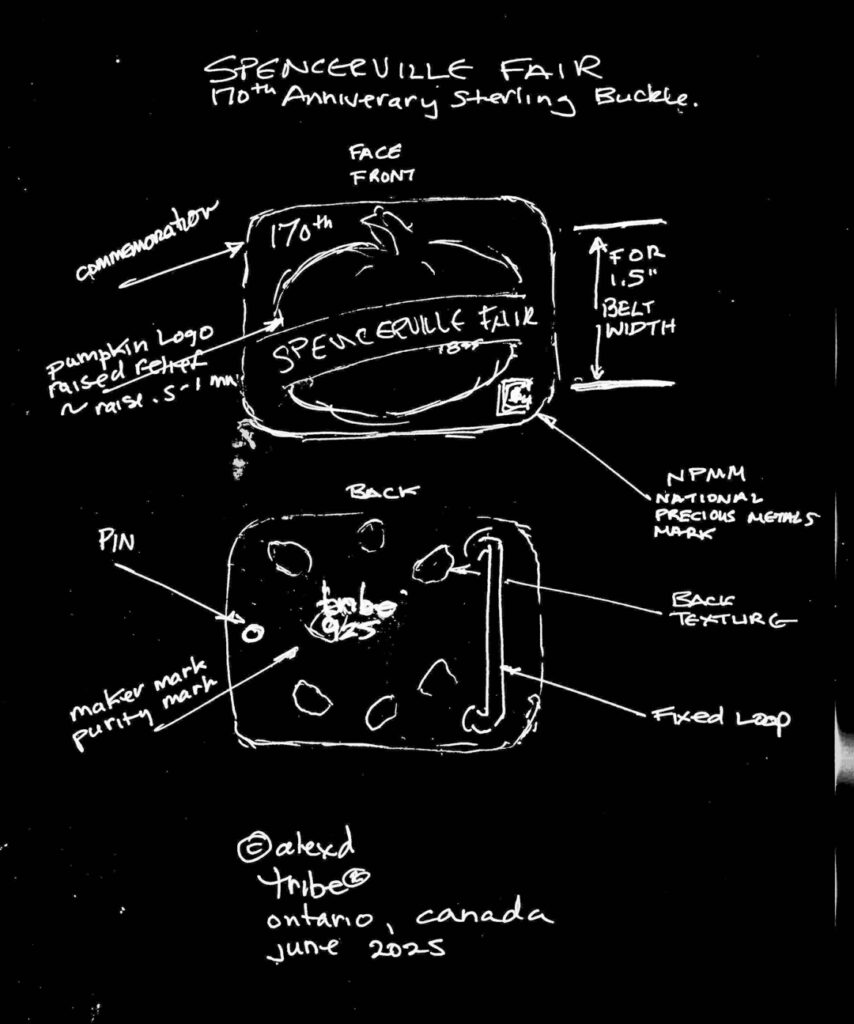 SPENCERVILLE FAIR
170th Anniverary Sterling Buckle.
FACE
FRONT
commemoration
170th
FOR
1.5"
BELT
WIDTH
pumpkin Logo
raised relief
~ raise .5-1 mm
SPENCERVILLE FAIR
NPMM
NATIONAL
PRECIOUS METALS
MARK
BACK
PIN
tribe
925
BACK
TEXTURE
maker mark
purity mark
Fixed Loop
© alexd
tribe®
ontario, canada
june 2025